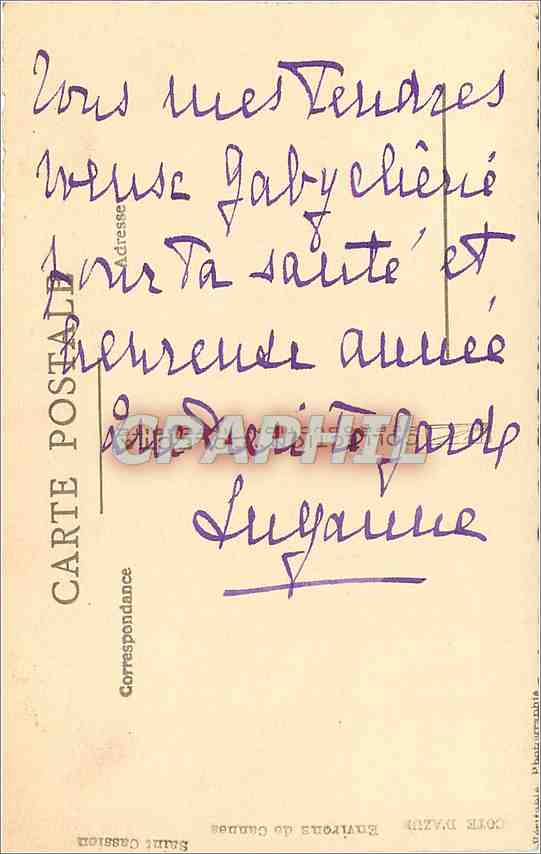 Tous mes Tendres
voeux Gaby chérie
pour Ta santé et
heureuse année
Que Dieu Te garde
Suzanne
CARTE POSTALE
Adresse
Correspondance
CPAPHIL
COTE D'AZUR
Environs de Cannes
Saint Cassien
Véritable Photographie